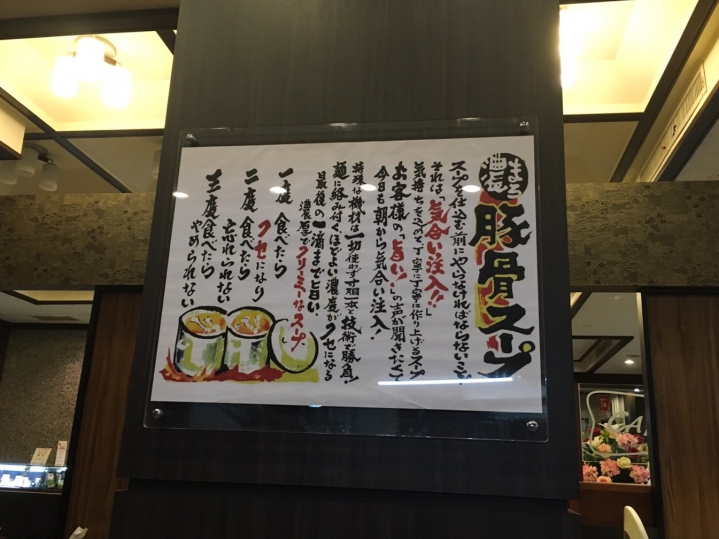 濃厚まろ
豚骨スープ
スープを仕込む前にやらなければならないこと、
それは「気合い注入!!」
気持ちを込めて丁寧に丁寧に作り上げるスープ
お客様の「旨い!」の声が聞きたくて
今日も朝から気合い注入!
特殊な機材は一切使わず腕一本と技術で勝負!
麺に絡み付くほどよい濃度がクセになる
最後の一滴まで旨い、
濃厚でクリーミーなスープ
一度 食べたら
クセになり
二度 食べたら
忘れられない
三度 食べたら
やめられない
CA